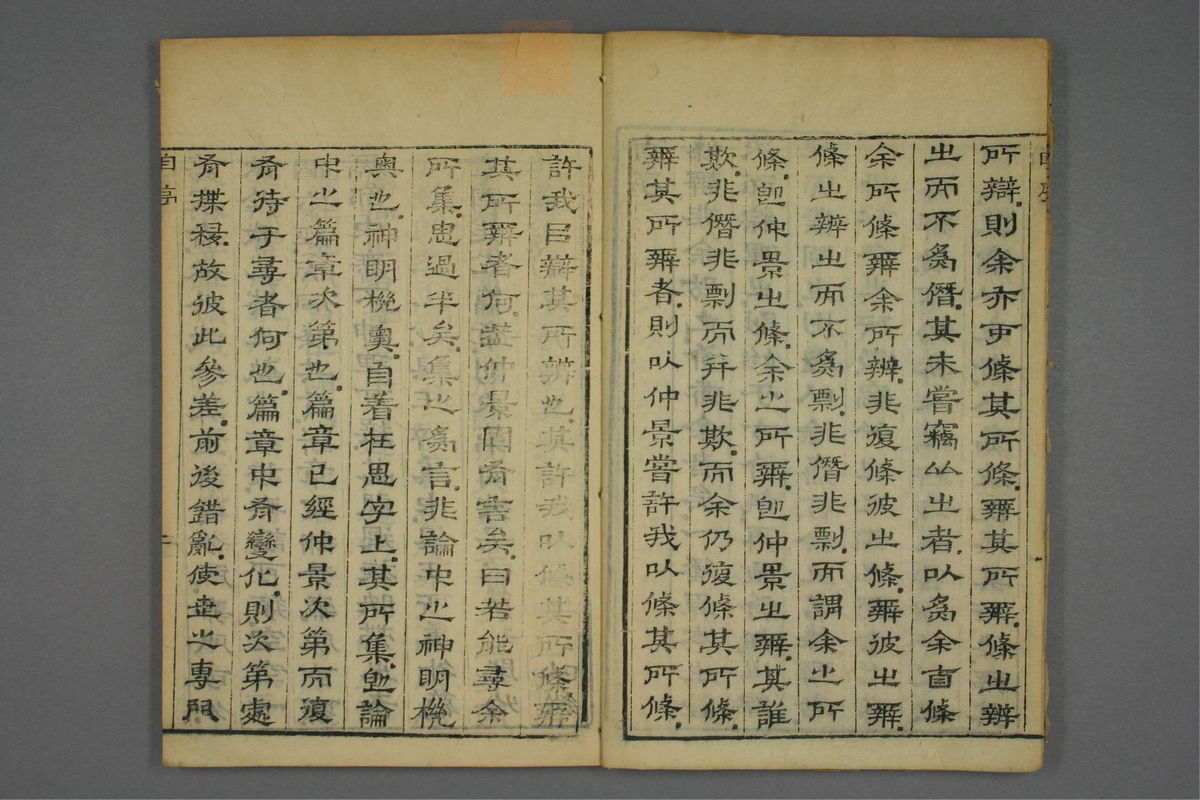 所辯則余亦可條其所條辨其所辨條之辨
之而不為僭其未嘗竊之者以為余自條
余所條辨余所辨非復條彼之條辨彼之辨
條之辨之而不為剽非僭非剽而謂余之所
條即仲景之條余之所辨即仲景之辨其誰
欺非僭非剽而并非欺而余仍復條其所條
辨其所辨者則以仲景嘗許我以條其所條
許我㠯辨其所辨也其許我以條其所條辨
其所辨者何蓋仲景固有言矣曰若能尋余
所集思過半矣集之為言非論中之神明機
奧也神明機奧自著在思字上其所集即論
中之篇章次第也篇章已經仲景次第而復
有待于尋者何也篇章中有變化則次第處
有揲移故彼此參差前後錯亂使世之專門
自序